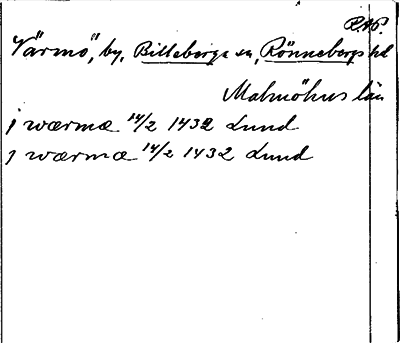 P.A.P.
"Värmö", by, Billeberga sn, Rönnebergs hd
Malmöhus län
j wærmæ 14/2 1432 Lund
j wærmæ 14/2 1432 Lund